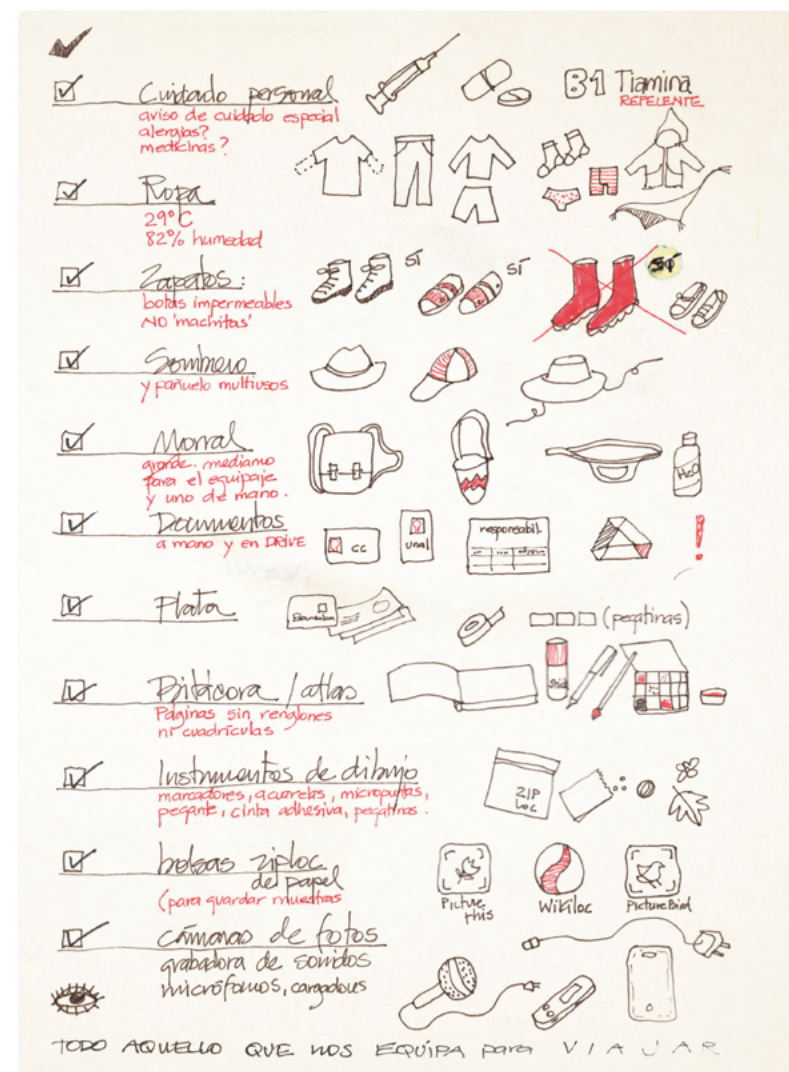 Cuidado personal
aviso de cuidado especial
alergias?
medicinas?
B1 Tiamina
REPELENTE
Ropa
29°C
82% humedad
Zapatos:
botas impermeables
NO 'machitas'
SÍ
SÍ
SÍ
Sombrero
y pañuelo multiusos
Morral
grande.. mediano
para el equipaje
y uno de mano.
H2O
Documentos
a mano y en DRIVE
CC
unal
responsabil.
!
Plata
(pegatinas)
Bitácora / atlas
Páginas sin renglones
ni cuadrículas
Instrumentos de dibujo
marcadores, acuarelas, micropuntas,
pegante, cinta adhesiva, pegatinas.
ZIP
Loc
bolsas ziploc
de papel
(para guardar muestras
Picture
this
Wikiloc
Picture Bird
cámaras de fotos
grabadora de sonidos
micrófonos, cargadores
TODO AQUELLO QUE NOS EQUIPA para VIAJAR